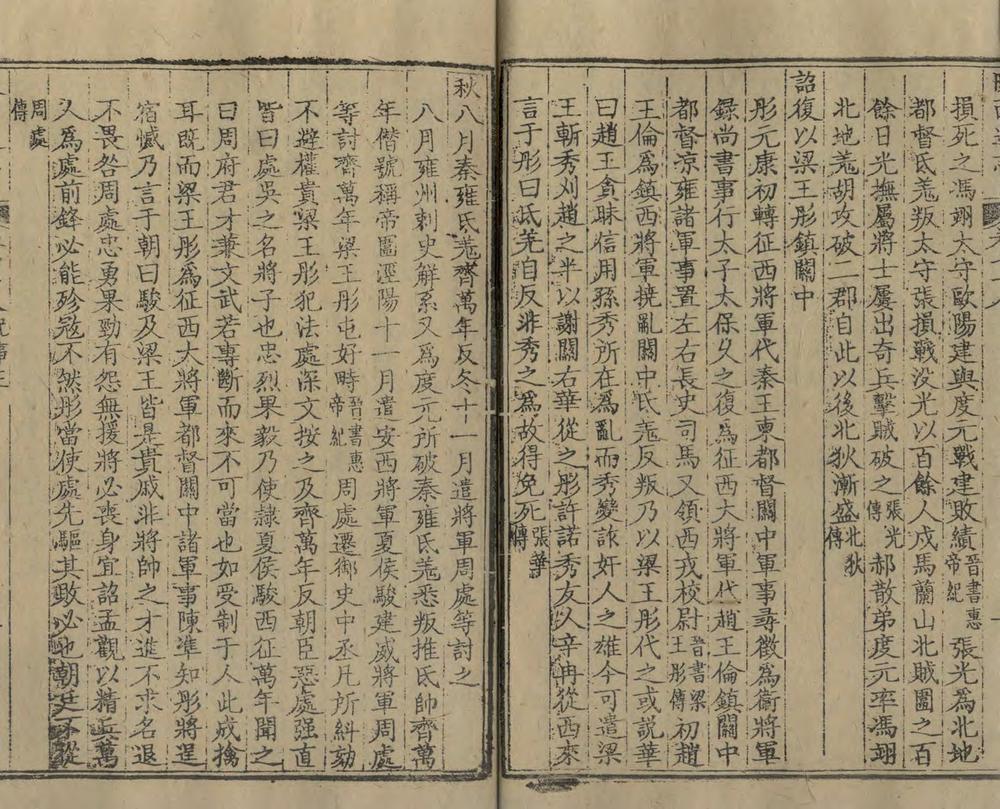 損死之馮翊太守歐陽建與度元戰建敗績晉書惠帝紀張光爲北地
都督氐羗叛太守張損戰没光以百餘人戍馬蘭山北賊圍之百
餘日光撫厲將士屢出奇兵擊賊破之張光傳郝散弟度元率馮翊
北地羗胡攻破二郡自此以後北狄漸盛北狄傳
詔復以梁王肜鎮關中
肜元康初轉征西將軍代秦王柬都督關中軍事尋徵爲衛將軍
録尚書事行太子太保久之復爲征西大將軍代趙王倫鎮關中
都督涼雍諸軍事置左右長史司馬又領西戎校尉晉書梁王肜傳初趙
王倫爲鎮西將軍撓亂關中氐羗反叛乃以梁王肜代之或説華
曰趙王貪昧信用孫秀所在爲亂而秀變詐奸人之雄今可遣梁
王斬秀刈趙之半以謝關右華從之肜許諾秀友人辛冉從西來
言于肜曰氐羗自反非秀之爲故得免死張華傳
秋八月秦雍氐羗齊萬年反冬十一月遣將軍周處等討之
八月雍州刺史解系又爲度元所破秦雍氐羗悉叛推氐帥齊萬
年僭號稱帝圍涇陽十一月遣安西將軍夏侯駿建威將軍周處
等討齊萬年梁王肜屯好畤晉書惠帝紀周處遷御史中丞凡所糾劾
不避權貴梁王肜犯法處深文按之及齊萬年反朝臣惡處强直
皆曰處吳之名將子也忠烈果毅乃使隷夏侯駿西征萬年聞之
曰周府君才兼文武若專斷而來不可當也如受制于人此成擒
耳既而梁王肜爲征西大將軍都督關中諸軍事陳準知肜將逞
宿憾乃言于朝曰駿及梁王皆是貴戚非將帥之才進不求名退
不畏咎周處忠勇果勁有怨無援將必喪身宜詔孟觀以精兵萬
人爲處前鋒必能殄寇不然肜當使處先驅其敗必也朝廷不從
周處傳